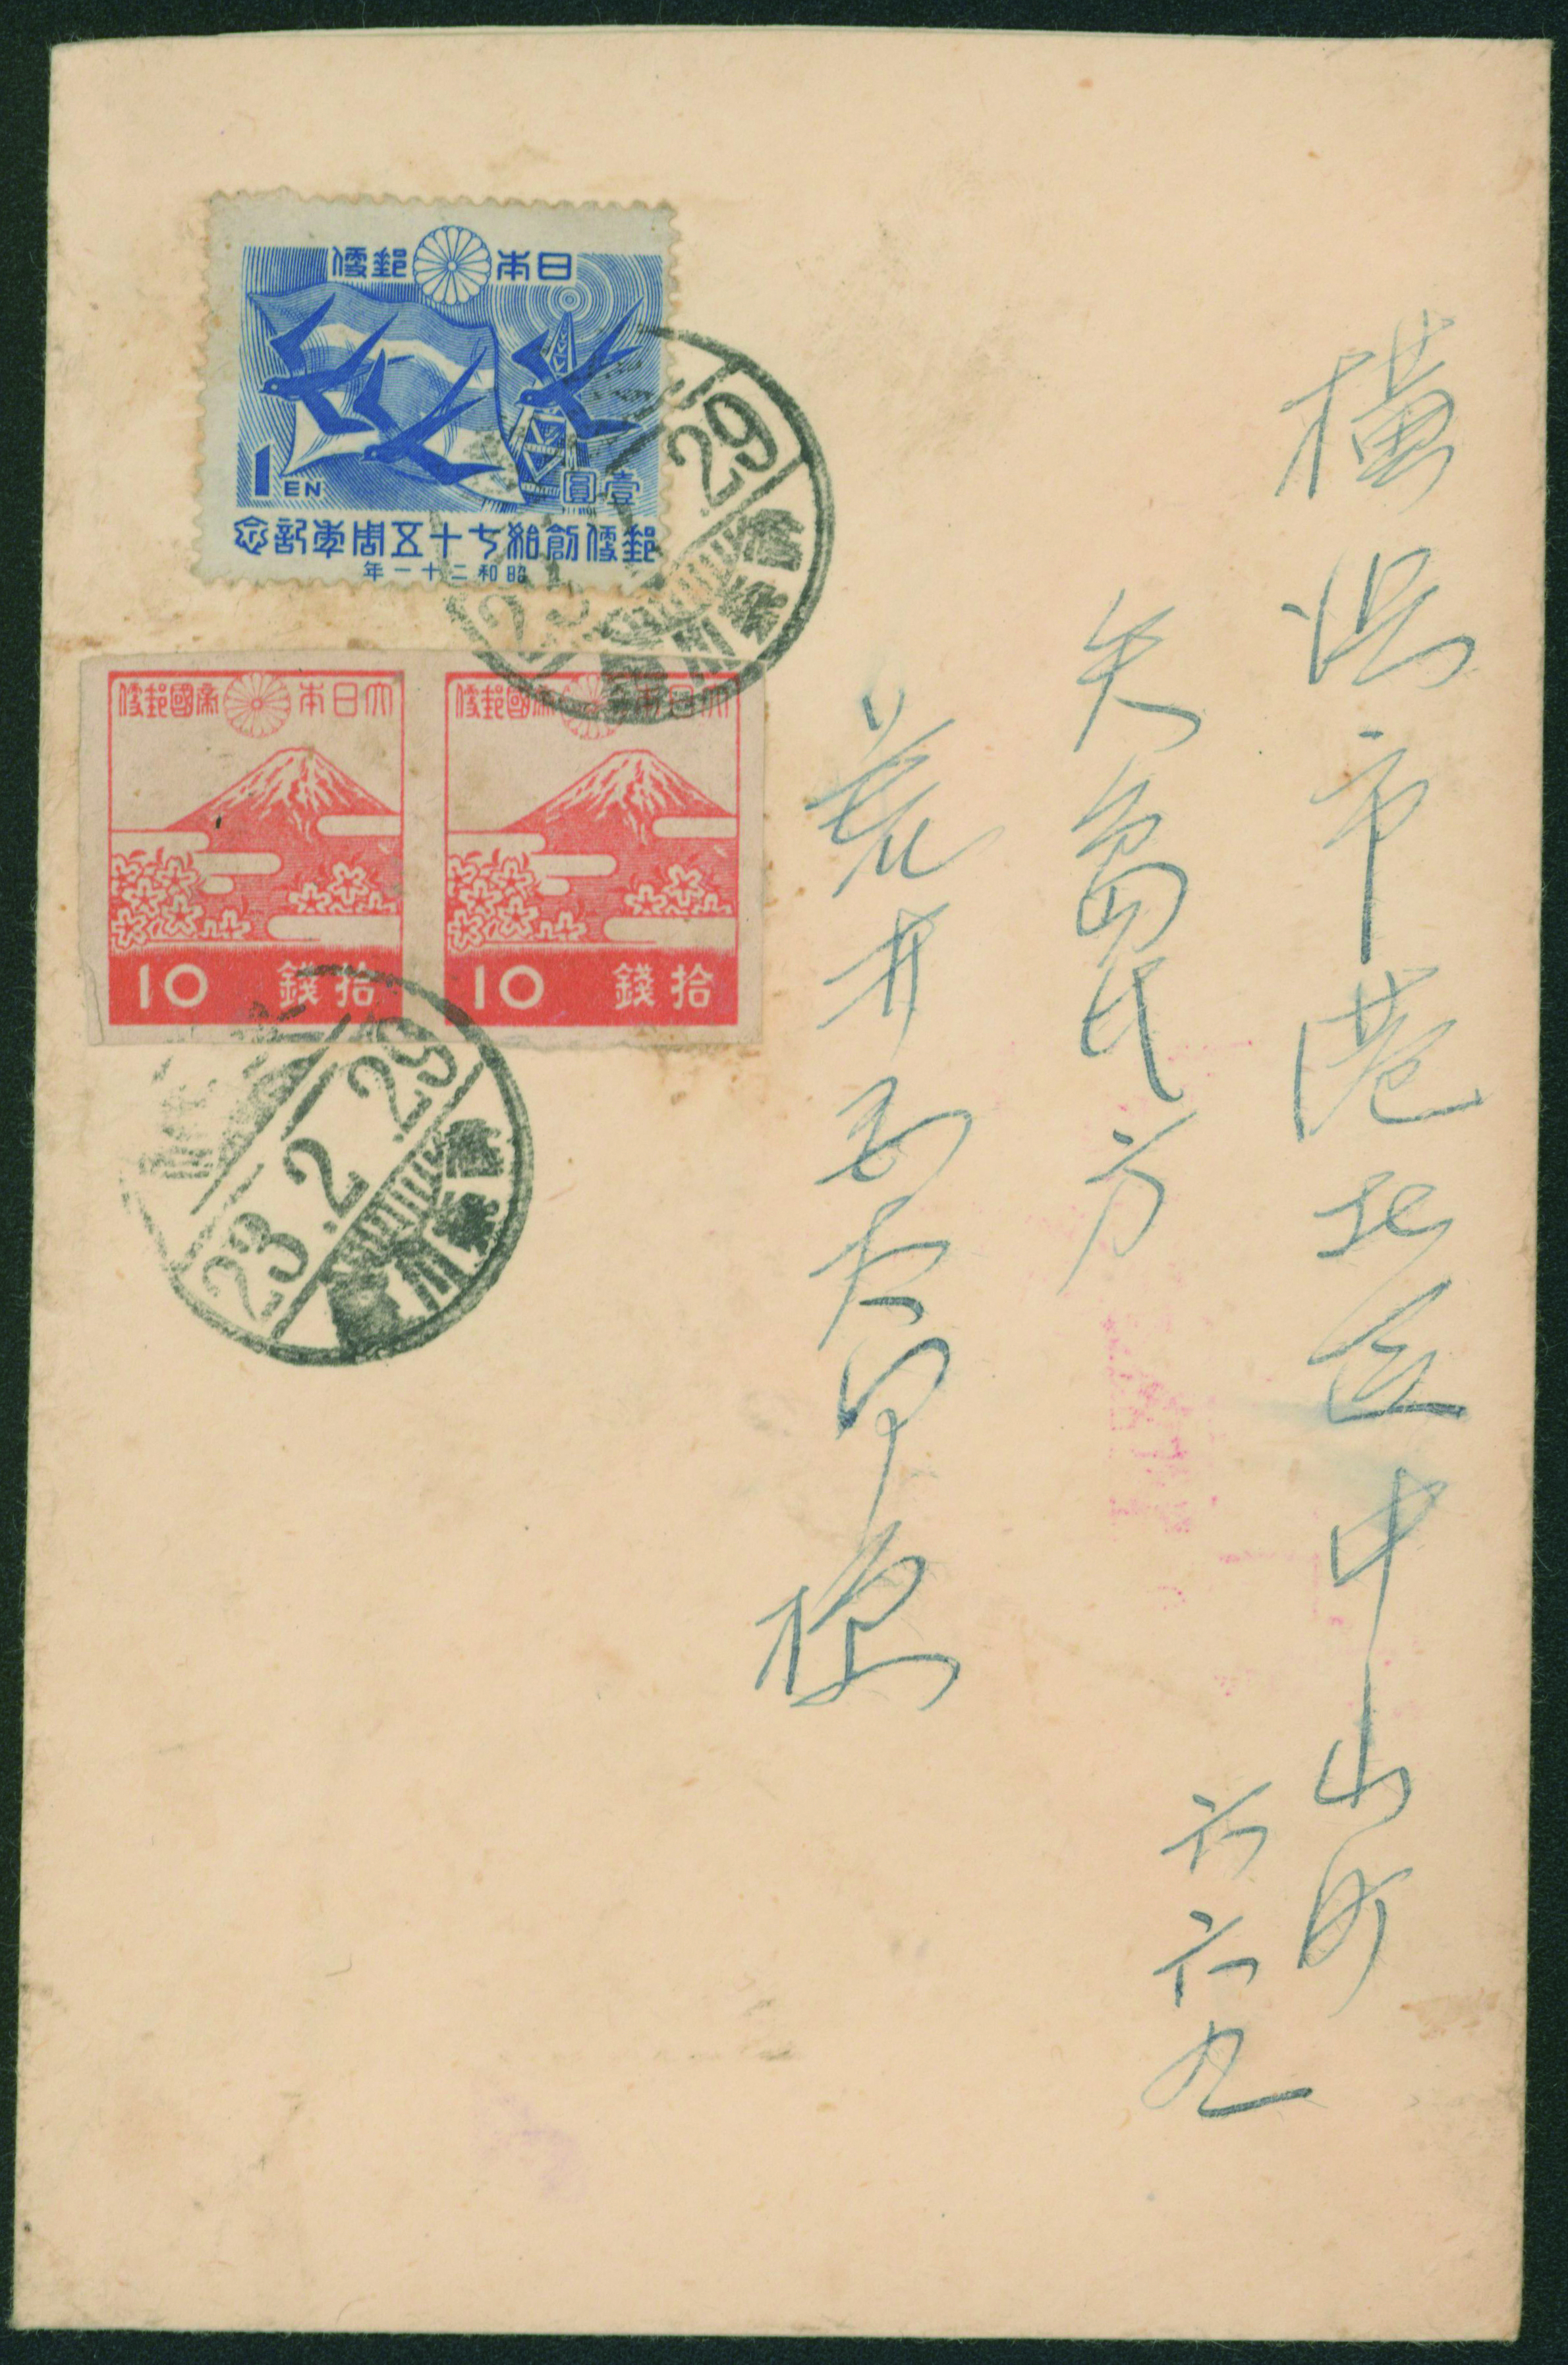 横浜市港北区中山町
六六九
矢島氏方
荒井
様
日本郵便
1EN
壹圓
郵便創始七十五周年記念
昭和二十一年
大日本帝國郵便
拾錢 10
大日本帝國郵便
拾錢 10
29
23
23.2.29